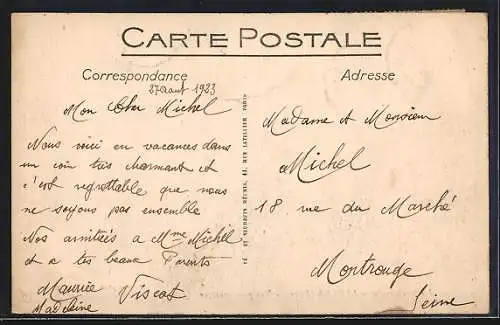 CARTE POSTALE
Correspondance
27 aout 1923
Mon Cher Michel
Nous voici en vacances dans
un coin très charmant et
c'est regrettable que nous
ne soyons pas ensemble
Nos amitiés a Mme Michel
et a tes beaux Parents
Maurice
Madeleine
Viscat
RUE LATELLIER PARIS
Adresse
Madame et Monsieur
Michel
18 rue du Marché
Montrouge
Seine